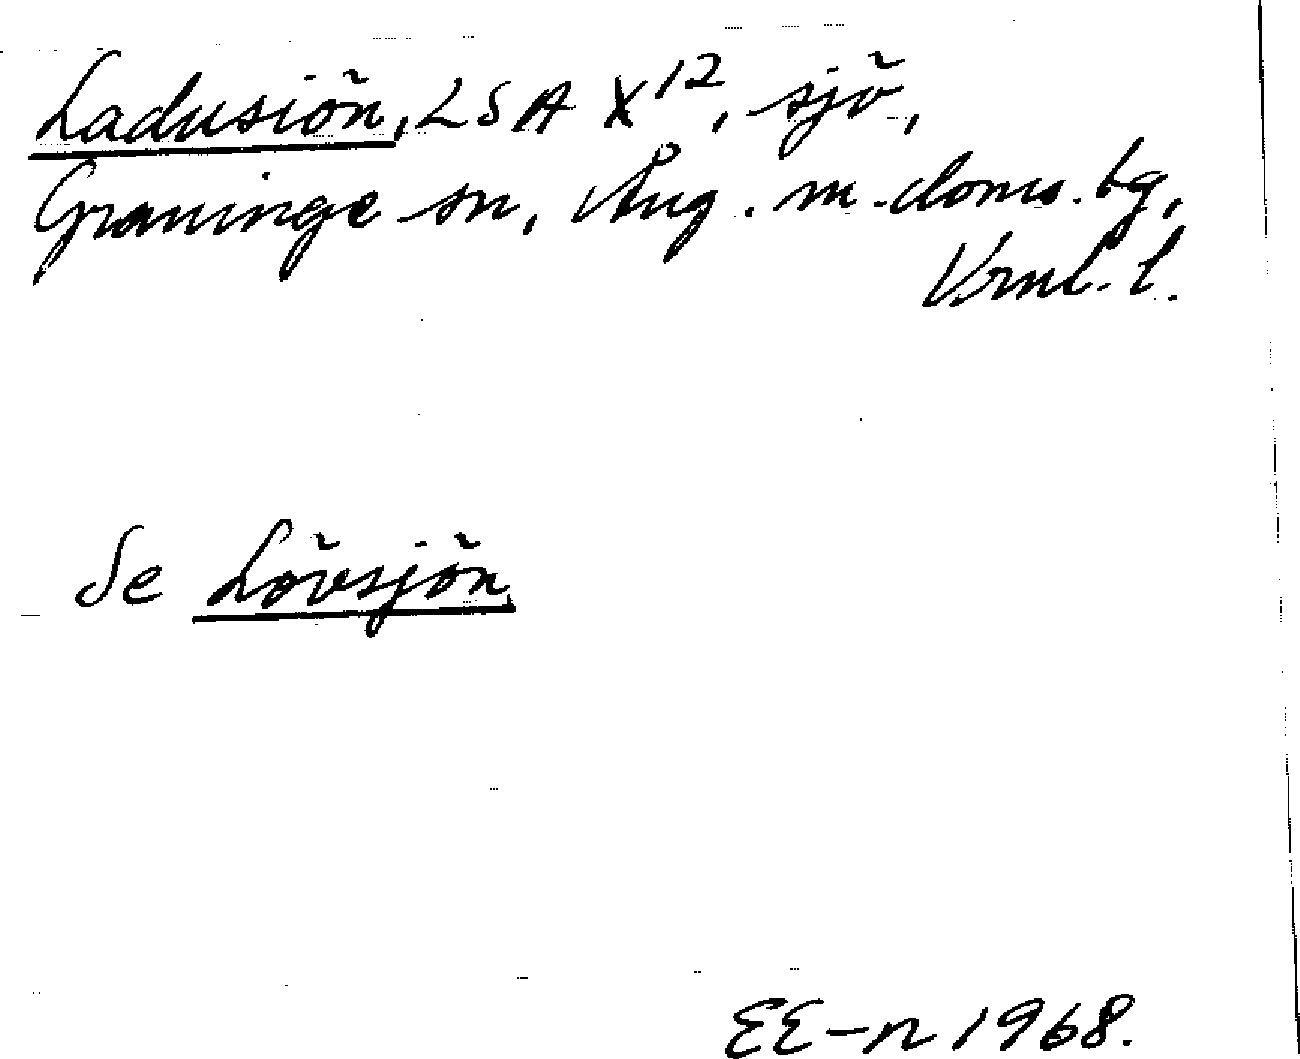 Ladusiön, LSA X12, sjö,
Graninge sn, Ång. m. doms. bg,
Vrnl. l.
Se Lövsjön
EE-n 1968.